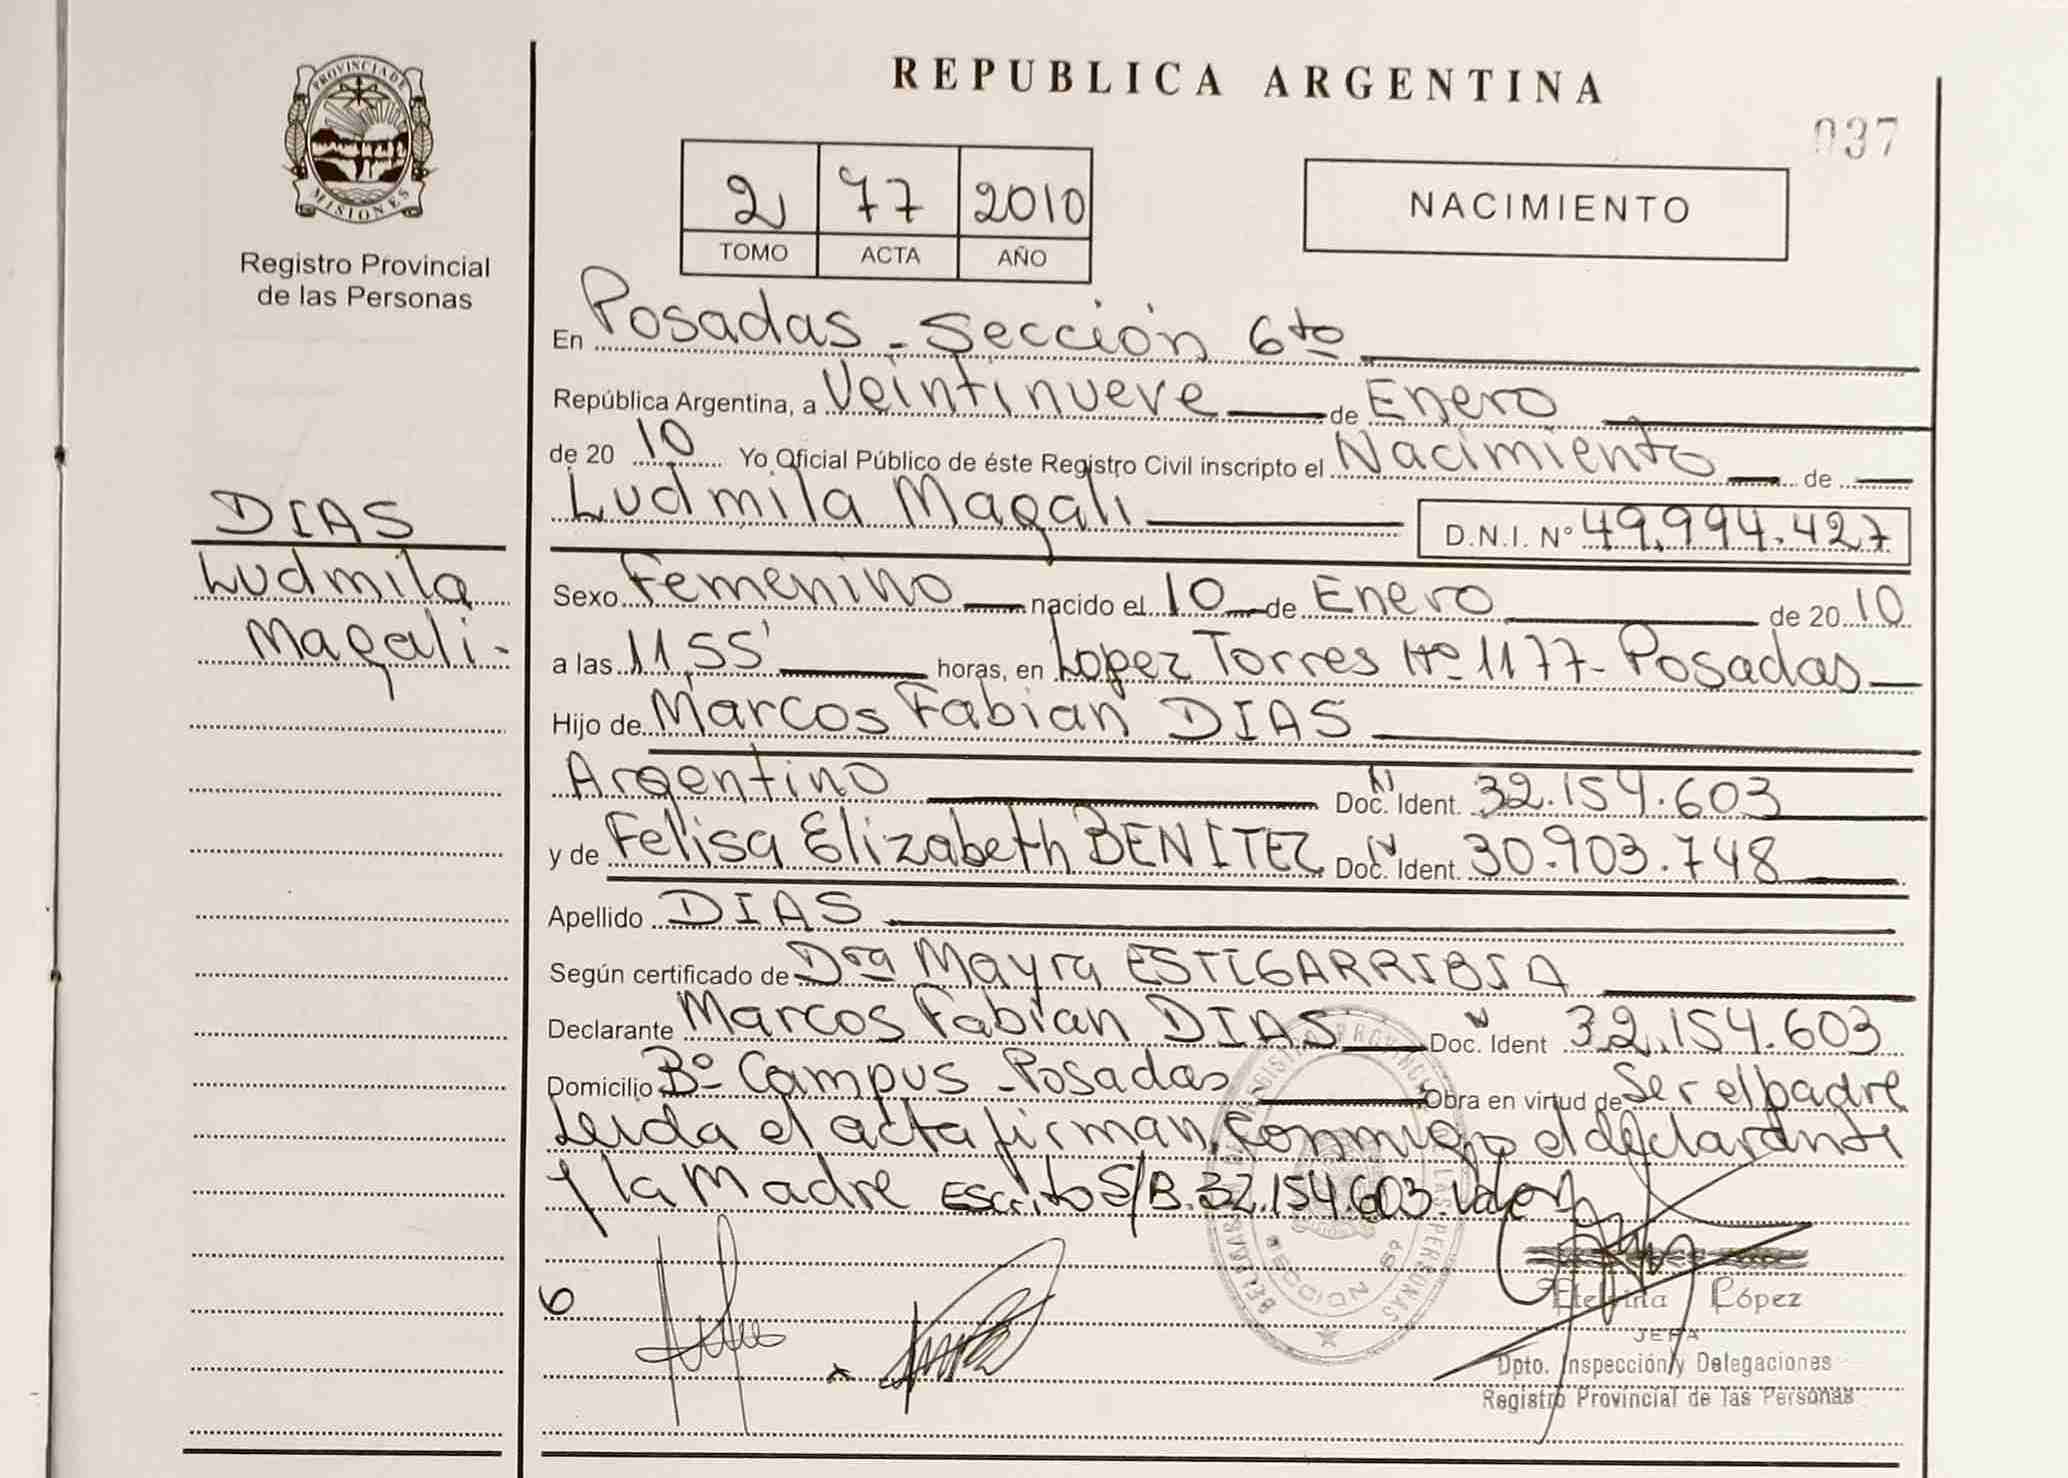 PROVINCIA DE
MISIONES
Registro Provincial
de las Personas
DIAS
Ludmila
Magali-
REPUBLICA ARGENTINA
037
2 77 2010
TOMO ACTA AÑO
NACIMIENTO
En Posadas - Sección 6to
República Argentina, a Veintinueve de Enero
de 20 10 Yo Oficial Público de éste Registro Civil inscripto el Nacimiento de
Ludmila Magali D.N.I. Nº 49.994.427
Sexo Femenino nacido el 10 de Enero de 20 10
a las 11,55' horas, en Lopez Torres Nº 1177- Posadas
Hijo de Marcos Fabian DIAS
Argentino Doc. Ident. 32.154.603
y de Felisa Elizabeth BENITEZ Doc. Ident. 30.903.748
Apellido DIAS
Según certificado de Dra Mayra ESTIGARRIBIA
Declarante Marcos Fabian DIAS Doc. Ident 32.154.603
Domicilio Bº Campus - Posadas Obra en virtud de Ser el padre
Leida el acta firman conmigo el declarante
y la Madre Escrito S/B.32.154.603. Valen
6
SECCION 6ª
Etelvina López
JEFA
Dpto. Inspección y Delegaciones
Registro Provincial de las Personas